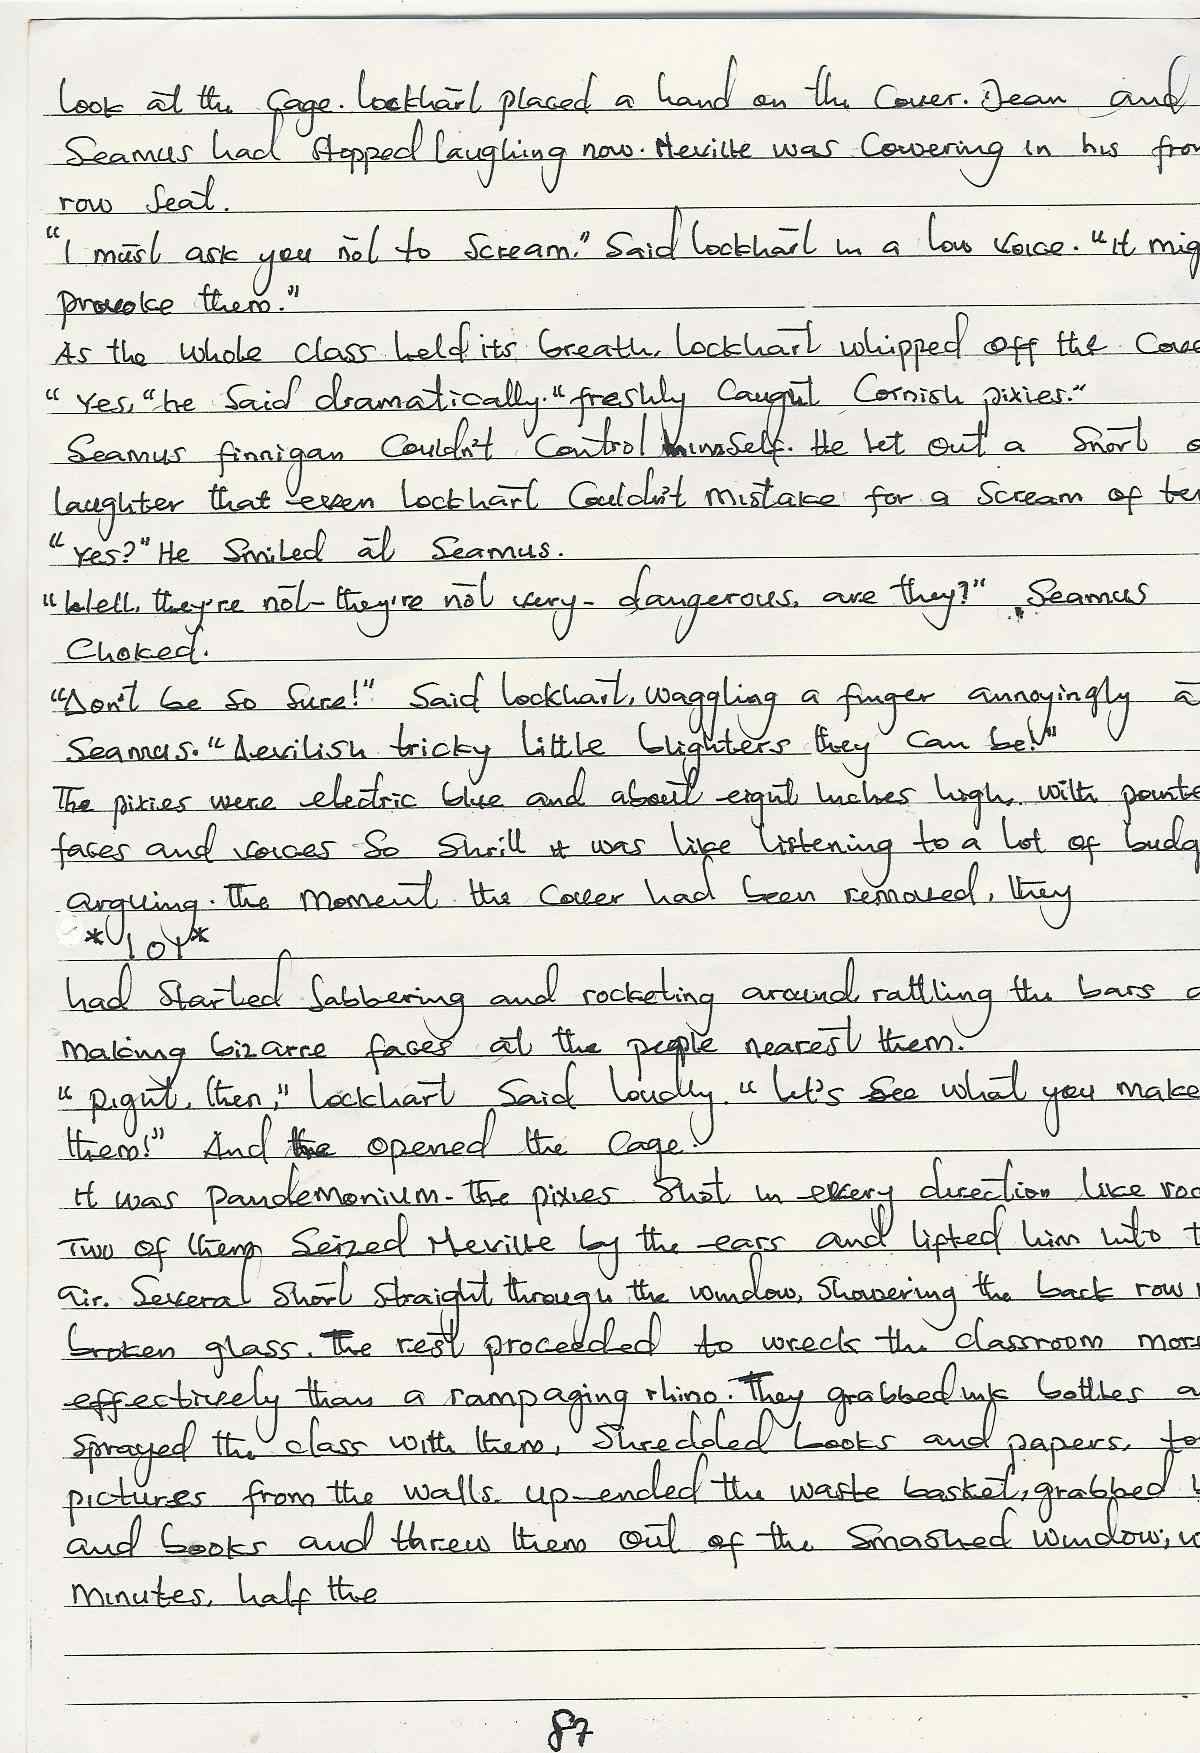 look at the cage. lockhart placed a hand on the cover. Dean and
Seamus had stopped laughing now. Neville was cowering in his fron
row seat.
"I must ask you not to scream." Said lockhart in a low voice. "it mig
provoke them."
As the whole class held its breath, lockhart whipped off the cove
"Yes," he said dramatically. "freshly caught Cornish pixies."
Seamus finnigan couldn't control himself. He let out a snort o
laughter that even lockhart couldn't mistake for a scream of ter
"Yes?" He smiled at Seamus.
"Well, they're not - they're not very - dangerous, are they?" Seamus
choked.
"Don't be so sure!" Said lockhart, waggling a finger annoyingly a
Seamus. "Devilish tricky little blighters they can be!"
The pixies were electric blue and about eight inches high, with pointe
faces and voices so shrill it was like listening to a lot of budg
arguing. The moment the cover had been removed, they
*101*
had started jabbering and rocketing around, rattling the bars a
making bizarre faces at the people nearest them.
"Right, then," lockhart said loudly. "let's see what you make
them!" And he opened the cage.
it was pandemonium - The pixies shot in every direction like roc
Two of them seized Neville by the ears and lifted him into t
air. Several short straight through the window, showering the back row
broken glass. The rest proceeded to wreck the classroom more
effectively than a rampaging rhino. They grabbed ink bottles a
sprayed the class with them, shredded books and papers, to
pictures from the walls, up-ended the waste basket, grabbed b
and books and threw them out of the smashed window; w
minutes, half the
87